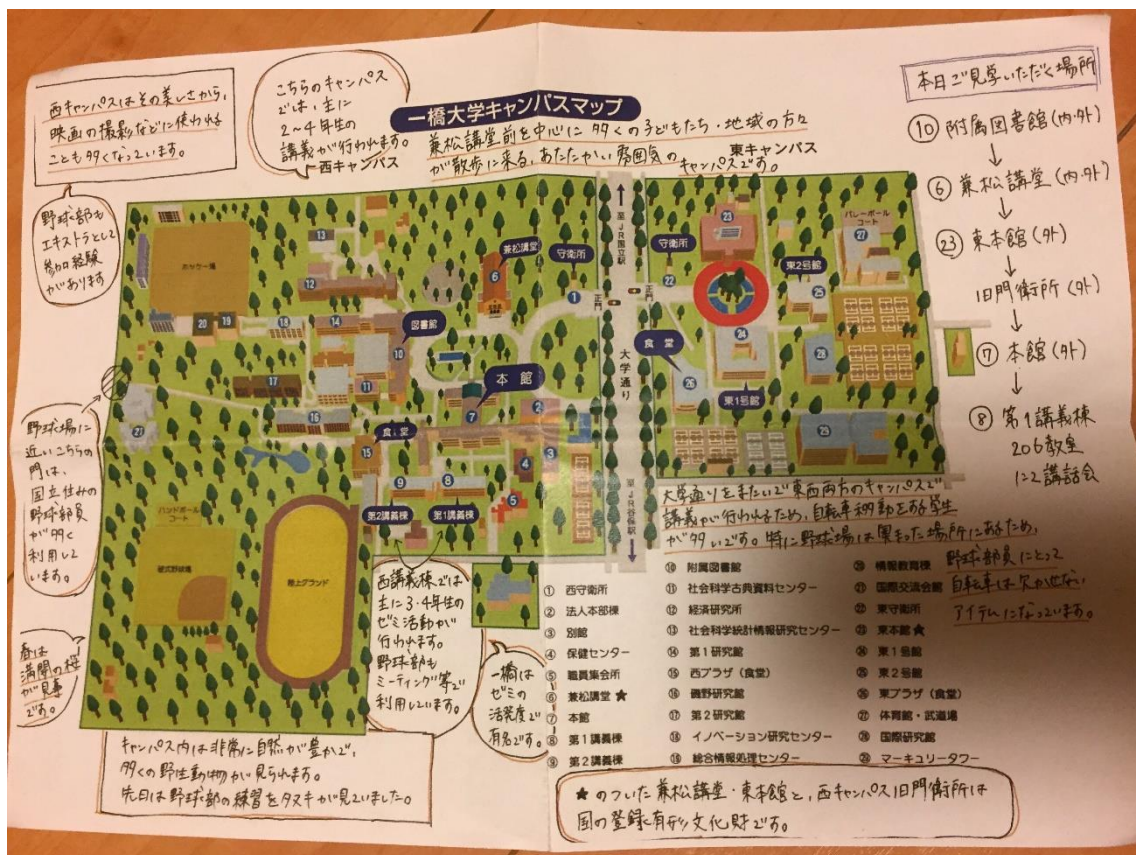 西キャンパスはその美しさから、
映画の撮影などに使われる
ことも多くなっています。
こちらのキャンパス
では、主に
2〜4年生の
講義が行われます。
←西キャンパス
一橋大学キャンパスマップ
兼松講堂前を中心に多くの子どもたち・地域の方々
が散歩に来る、あたたかい雰囲気の
キャンパスです。
東キャンパス
本日ご見学いただく場所
⑩ 附属図書館(内・外)
↓
⑥ 兼松講堂(内・外)
↓
㉓ 東本館(外)
↓
旧門衛所(外)
↓
⑦ 本館(外)
↓
⑧ 第1講義棟
206教室
にて講話会
野球部も
エキストラとして
参加経験
があります
サッカー場
兼松講堂
守衛所
正門
図書館
本館
食堂
第2講義棟
第1講義棟
ハンドボール
コート
硬式野球場
陸上グランド
至JR国立駅
大学通り
至JR谷保駅
正門
守衛所
東2号館
バレーボール
コート
食堂
東1号館
野球場に
近いこちらの
門は、
国立住みの
野球部員
が多く
利用して
います。
春は
満開の桜
が見事
です。
西講義棟では
主に3・4年生の
ゼミ活動が
行われます。
野球部も
ミーティング等で
利用しています。
一橋は
ゼミの
活発度で
有名です。
大学通りをまたいで東西両方のキャンパスで
講義が行われるため、自転車移動をする学生
が多いです。特に野球場は奥まった場所にあるため、
野球部員にとって
自転車は欠かせない
アイテムになっています。
① 西守衛所
② 法人本部棟
③ 別館
④ 保健センター
⑤ 職員集会所
⑥ 兼松講堂 ★
⑦ 本館
⑧ 第1講義棟
⑨ 第2講義棟
⑩ 附属図書館
⑪ 社会科学古典資料センター
⑫ 経済研究所
⑬ 社会科学統計情報研究センター
⑭ 第1研究館
⑮ 西プラザ(食堂)
⑯ 磯野研究館
⑰ 第2研究館
⑱ イノベーション研究センター
⑲ 総合情報処理センター
⑳ 情報教育棟
㉑ 国際交流会館
㉒ 東守衛所
㉓ 東本館 ★
㉔ 東1号館
㉕ 東2号館
㉖ 東プラザ(食堂)
㉗ 体育館・武道場
㉘ 国際研究館
㉙ マーキュリータワー
キャンパス内は非常に自然が豊かで、
多くの野生動物が見られます。
先日は野球部の練習をタヌキが見ていました。
★のついた兼松講堂・東本館と、西キャンパス旧門衛所は
国の登録有形文化財です。